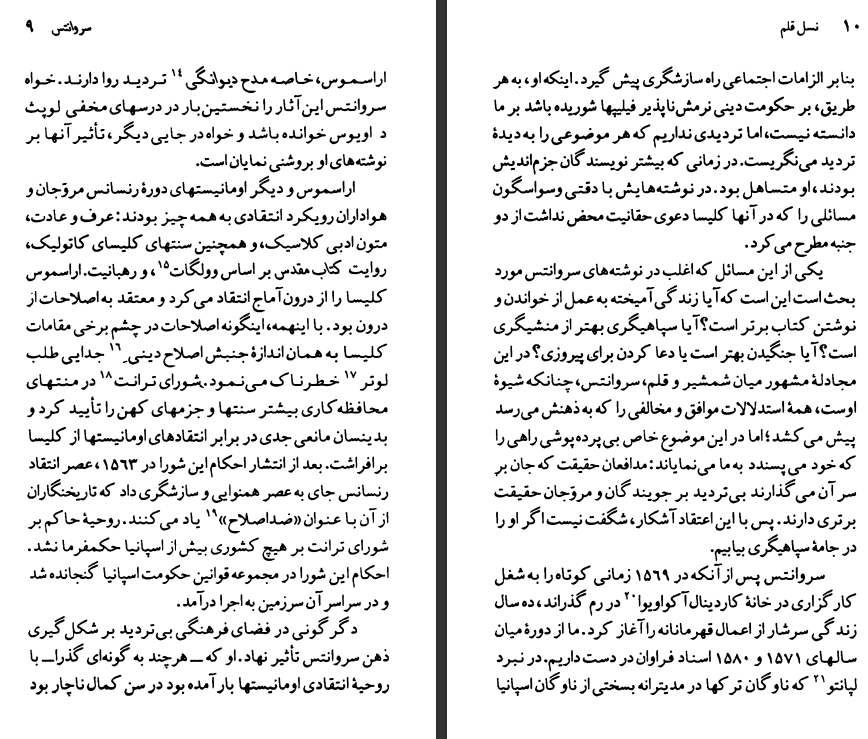 سروانتس ۹
اراسموس، خاصه مدح دیوانگی۱۴ تردید روا دارند. خواه
سروانتس این آثار را نخستین بار در درسهای مخفی لوپث
د اویوس خوانده باشد و خواه در جایی دیگر، تأثیر آنها بر
نوشته‌های او بروشنی نمایان است.
اراسموس و دیگر اومانیستهای دورهٔ رنسانس مروّجان و
هواداران رویکرد انتقادی به همه چیز بودند: عرف و عادت،
متون ادبی کلاسیک، و همچنین سنتهای کلیسای کاتولیک،
روایت کتاب مقدس بر اساس وولگات۱۵، و رهبانیت. اراسموس
کلیسا را از درون آماج انتقاد می‌کرد و معتقد به اصلاحات از
درون بود. با اینهمه، اینگونه اصلاحات در چشم برخی مقامات
کلیسا به همان اندازهٔ جنبش اصلاح دینیِ۱۶ جدایی طلب
لوتر۱۷ خطرناک می‌نمود. شورای ترانت۱۸ در منتهای
محافظه‌کاری بیشتر سنتها و جزمهای کهن را تأیید کرد و
بدینسان مانعی جدی در برابر انتقادهای اومانیستها از کلیسا
برافراشت. بعد از انتشار احکام این شورا در ۱۵۶۳، عصر انتقاد
رنسانس جای به عصر همنوایی و سازشگری داد که تاریخنگاران
از آن با عنوان «ضداصلاح»۱۹ یاد می‌کنند. روحیهٔ حاکم بر
شورای ترانت بر هیچ کشوری بیش از اسپانیا حکمفرما نشد.
احکام این شورا در مجموعه قوانین حکومت اسپانیا گنجانده شد
و در سراسر آن سرزمین به اجرا درآمد.
دگرگونی در فضای فرهنگی بی‌تردید بر شکل گیری
ذهن سروانتس تأثیر نهاد. او که ــ هرچند به گونه‌ای گذرا ــ با
روحیهٔ انتقادی اومانیستها بار آمده بود در سن کمال ناچار بود
۱۰ نسل قلم
بنابر الزامات اجتماعی راه سازشگری پیش گیرد. اینکه او، به هر
طریق، بر حکومت دینی نرمش‌ناپذیر فیلیپها شوریده باشد بر ما
دانسته نیست، اما تردیدی نداریم که هر موضوعی را به دیدهٔ
تردید می‌نگریست. در زمانی که بیشتر نویسندگان جزم‌اندیش
بودند، او متساهل بود. در نوشته‌هایش با دقتی وسواسگون
مسائلی را که در آنها کلیسا دعوی حقانیت محض نداشت از دو
جنبه مطرح می‌کرد.
یکی از این مسائل که اغلب در نوشته‌های سروانتس مورد
بحث است این است که آیا زندگی آمیخته به عمل از خواندن و
نوشتن کتاب برتر است؟ آیا سپاهیگری بهتر از منشیگری
است؟ آیا جنگیدن بهتر است یا دعا کردن برای پیروزی؟ در این
مجادلهٔ مشهور میان شمشیر و قلم، سروانتس، چنانکه شیوهٔ
اوست، همهٔ استدلالات موافق و مخالفی را که به ذهنش می‌رسد
پیش می‌کشد؛ اما در این موضوع خاص بی‌پرده‌پوشی راهی را
که خود می‌پسندد به ما می‌نمایاند: مدافعان حقیقت که جان بر
سر آن می‌گذارند بی‌تردید بر جویندگان و مروّجان حقیقت
برتری دارند. پس با این اعتقاد آشکار، شگفت نیست اگر او را
در جامهٔ سپاهیگری بیابیم.
سروانتس پس از آنکه در ۱۵۶۹ زمانی کوتاه را به شغل
کارگزاری در خانهٔ کاردینال آکواویوا۲۰ در رم گذراند، ده سال
زندگی سرشار از اعمال قهرمانانه را آغاز کرد. ما از دورهٔ میان
سالهای ۱۵۷۱ و ۱۵۸۰ اسناد فراوان در دست داریم. در نبرد
لپانتو۲۱ که ناوگان ترکها در مدیترانه بسختی از ناوگان اسپانیا